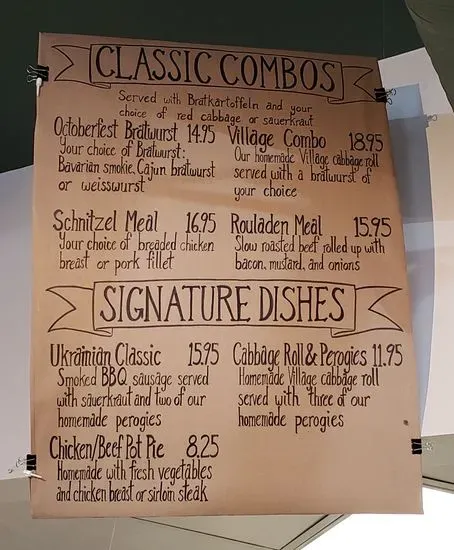 CLASSIC COMBOS
Served with Bratkartoffeln and your
choice of red cabbage or sauerkraut
Octoberfest Bratwurst 14.95
Your choice of Bratwurst:
Bavarian smokie, Cajun bratwurst
or weisswurst
Village Combo 18.95
Our homemade Village cabbage roll
served with a bratwurst of
your choice
Schnitzel Meal 16.95
Your choice of breaded chicken
breast or pork fillet
Rouladen Meal 15.95
Slow roasted beef rolled up with
bacon, mustard, and onions
SIGNATURE DISHES
Ukrainian Classic 15.95
Smoked BBQ sausage served
with sauerkraut and two of our
homemade perogies
Cabbage Roll & Perogies 11.95
Homemade Village cabbage roll
served with three of our
homemade perogies
Chicken/Beef Pot Pie 8.25
Homemade with fresh vegetables
and chicken breast or sirloin steak